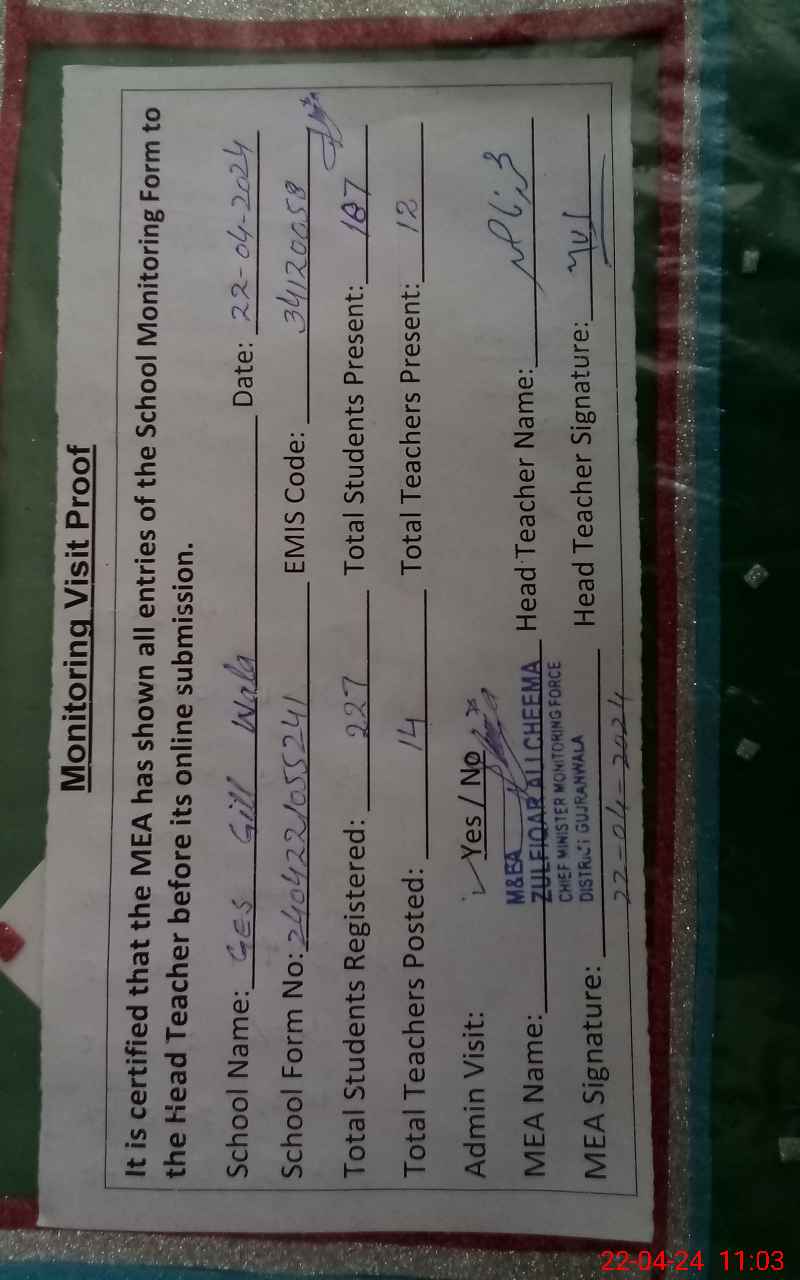 Monitoring Visit Proof
It is certified that the MEA has shown all entries of the School Monitoring Form to
the Head Teacher before its online submission.
School Name: GES Gill Wala Date: 22-04-2024
School Form No: 2404221055241 EMIS Code: 34120058
Total Students Registered: 227 Total Students Present: 187
Total Teachers Posted: 14 Total Teachers Present: 12
Admin Visit: ✓ Yes / No
M&EA
MEA Name: ZULFIQAR ALI CHEEMA Head Teacher Name:
CHIEF MINISTER MONITORING FORCE
DISTRICT GUJRANWALA
MEA Signature: Head Teacher Signature:
22-04-2024
22-04-24 11:03